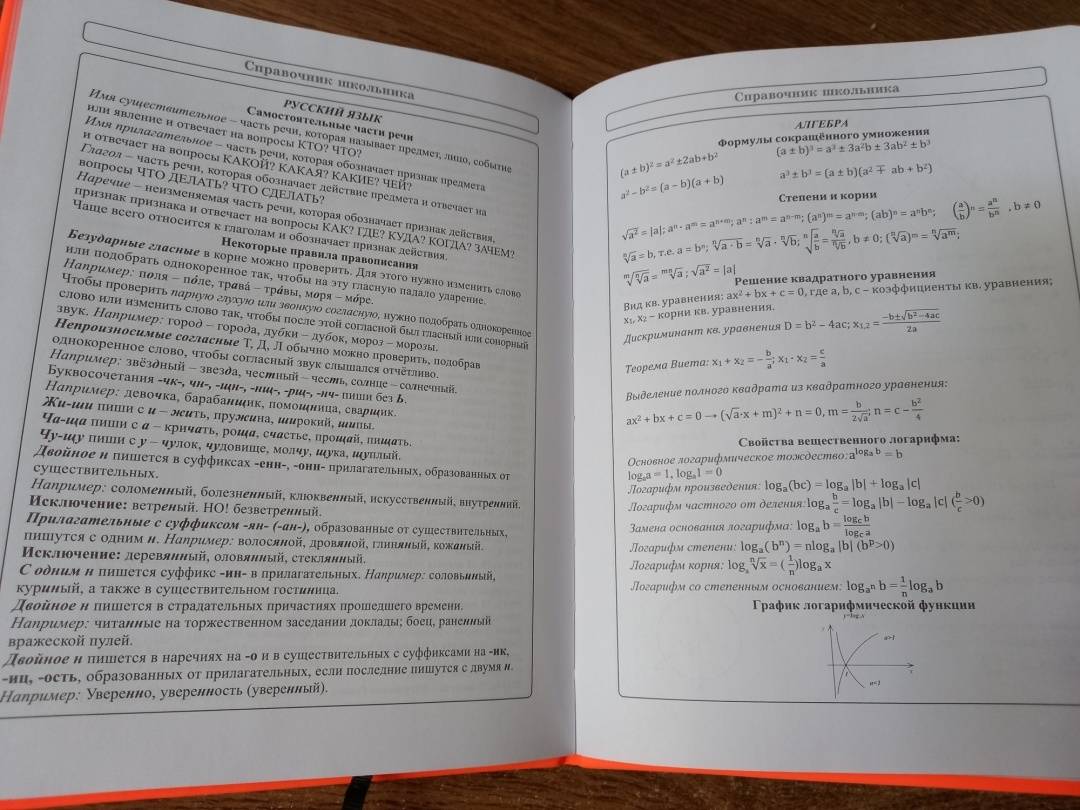 Справочник школьника
РУССКИЙ ЯЗЫК
Самостоятельные части речи
Имя существительное – часть речи, которая называет предмет, лицо, событие
или явление и отвечает на вопросы КТО? ЧТО?
Имя прилагательное – часть речи, которая обозначает признак предмета
и отвечает на вопросы КАКОЙ? КАКАЯ? КАКИЕ? ЧЕЙ?
Глагол – часть речи, которая обозначает действие предмета и отвечает на
вопросы ЧТО ДЕЛАТЬ? ЧТО СДЕЛАТЬ?
Наречие – неизменяемая часть речи, которая обозначает признак действия,
признак признака и отвечает на вопросы КАК? ГДЕ? КУДА? КОГДА? ЗАЧЕМ?
Чаще всего относится к глаголам и обозначает признак действия.
Некоторые правила правописания
Безударные гласные в корне можно проверить. Для этого нужно изменить слово
или подобрать однокоренное так, чтобы на эту гласную падало ударение.
Например: поля – по́ле, травá – трáвы, моря – мо́ре.
Чтобы проверить парную глухую или звонкую согласную, нужно подобрать однокоренное
слово или изменить слово так, чтобы после этой согласной был гласный или сонорный
звук. Например: город – города, дубки – дубок, мороз – морозы.
Непроизносимые согласные Т, Д, Л обычно можно проверить, подобрав
однокоренное слово, чтобы согласный звук слышался отчётливо.
Например: звёздный – звезда, честный – честь, солнце – солнечный.
Буквосочетания -чк-, чн-, -щн-, -нщ-, -рщ-, -нч- пиши без Ь.
Например: девочка, барабанщик, помощница, сварщик.
Жи-ши пиши с и – жить, пружина, широкий, шипы.
Ча-ща пиши с а – кричать, роща, счастье, прощай, пищать.
Чу-щу пиши с у – чулок, чудовище, молчу, щука, щуплый.
Двойное н пишется в суффиксах -енн-, -онн- прилагательных, образованных от
существительных.
Например: соломенный, болезненный, клюквенный, искусственный, внутренний.
Исключение: ветреный. НО! безветренный.
Прилагательные с суффиксом -ян- (-ан-), образованные от существительных,
пишутся с одним н. Например: волосяной, дровяной, глиняный, кожаный.
Исключение: деревянный, оловянный, стеклянный.
С одним н пишется суффикс -ин- в прилагательных. Например: соловьиный,
куриный, а также в существительном гостиница.
Двойное н пишется в страдательных причастиях прошедшего времени.
Например: читанные на торжественном заседании доклады; боец, раненный
вражеской пулей.
Двойное н пишется в наречиях на -о и в существительных с суффиксами на -ик,
-иц, -ость, образованных от прилагательных, если последние пишутся с двумя н.
Например: Уверенно, уверенность (уверенный).
Справочник школьника
АЛГЕБРА
Формулы сокращённого умножения
(a ± b)² = a² ±2ab+b² (a ± b)³ = a³ ± 3a²b ± 3ab² ± b³
a² – b² = (a – b)(a + b) a³ ± b³ = (a ± b)(a² ∓ ab + b²)
Степени и корни
√a² = |a|; aⁿ · aᵐ = aⁿ⁺ᵐ; aⁿ : aᵐ = aⁿ⁻ᵐ; (aⁿ)ᵐ = aⁿ·ᵐ; (ab)ⁿ = aⁿbⁿ; (a/b)ⁿ = aⁿ/bⁿ , b ≠ 0
ⁿ√a = b, т.е. a = bⁿ; ⁿ√a · b = ⁿ√a · ⁿ√b; ⁿ√a/b = ⁿ√a/ⁿ√b, b ≠ 0; (ⁿ√a)ᵐ = ⁿ√aᵐ;
ᵐ√ⁿ√a = ᵐⁿ√a ; √a² = |a|
Решение квадратного уравнения
Вид кв. уравнения: ax² + bx + c = 0, где a, b, c – коэффициенты кв. уравнения;
x₁, x₂ – корни кв. уравнения.
Дискриминант кв. уравнения D = b² – 4ac; x₁,₂ = –b±√b²–4ac/2a
Теорема Виета: x₁ + x₂ = – b/a; x₁ · x₂ = c/a
Выделение полного квадрата из квадратного уравнения:
ax² + bx + c = 0 → (√a·x + m)² + n = 0, m = b/2√a; n = c – b²/4
Свойства вещественного логарифма:
Основное логарифмическое тождество: a^logₐ b = b
logₐa = 1, logₐ1 = 0
Логарифм произведения: logₐ(bc) = logₐ |b| + logₐ |c|
Логарифм частного от деления: logₐ b/c = logₐ |b| – logₐ |c| (b/c >0)
Замена основания логарифма: logₐ b = log_c b/log_c a
Логарифм степени: logₐ( bⁿ) = nlogₐ |b| (bᵖ>0)
Логарифм корня: logₐ ⁿ√x = (1/n)logₐ x
Логарифм со степенным основанием: logₐⁿ b = 1/n logₐ b
График логарифмической функции
y=logₐx
y
a>1
1
x
a<1